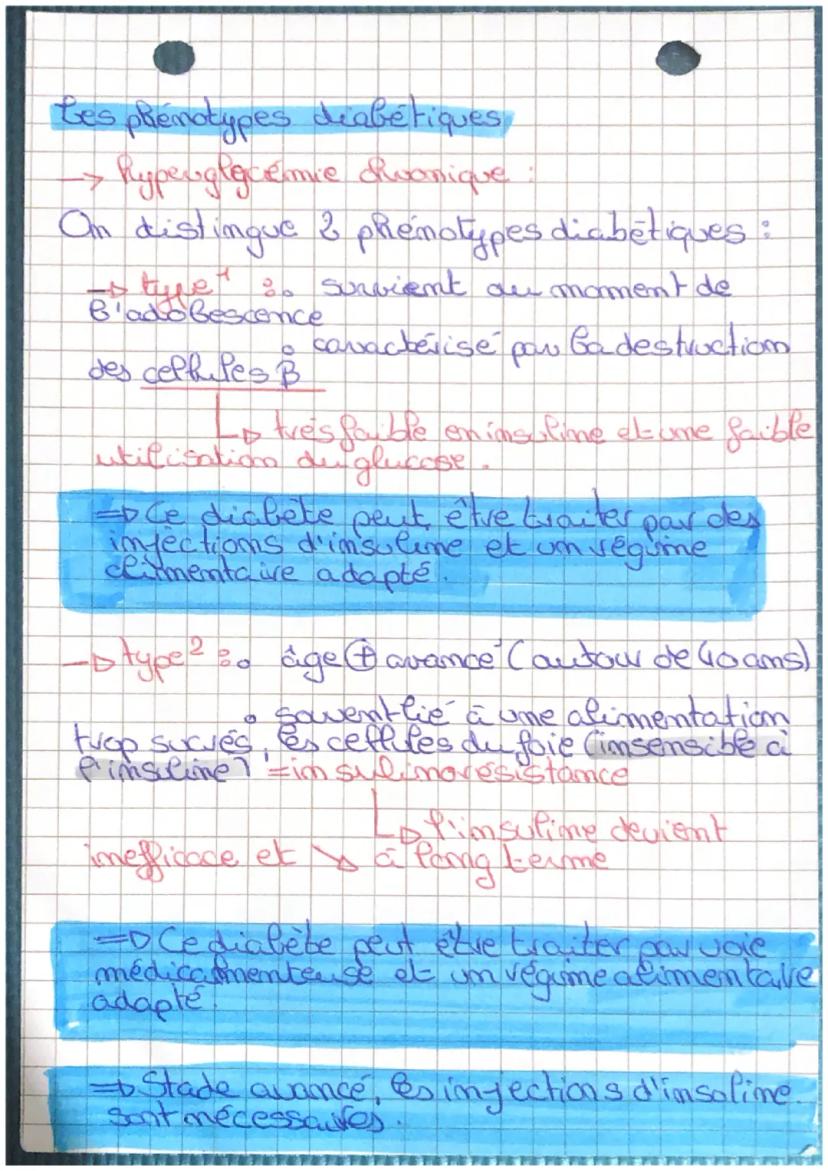 Les phénotypes diabétiques
→ hyperglycémie chronique :
On distingue 2 phénotypes diabétiques :
→ type 1 : • survient au moment de
l'adolescence
• caractérisé par la destruction
des cellules B
↳ très faible en insuline et une faible
utilisation du glucose.
⇒ Ce diabète peut être traiter par des
injections d'insuline et un régime
alimentaire adapté.
→ type 2 : • âge ⊕ avancé (autour de 40 ans)
• souvent lié à une alimentation
trop sucrés, les cellules du foie (insensible à
l'insuline) = insulinorésistance
↳ l'insuline devient
inefficace et ↘ à long terme
⇒ Ce diabète peut être traiter par voie
médicamenteuse et un régime alimentaire
adapté.
⇒ Stade avancé, les injections d'insuline
sont nécessaires.